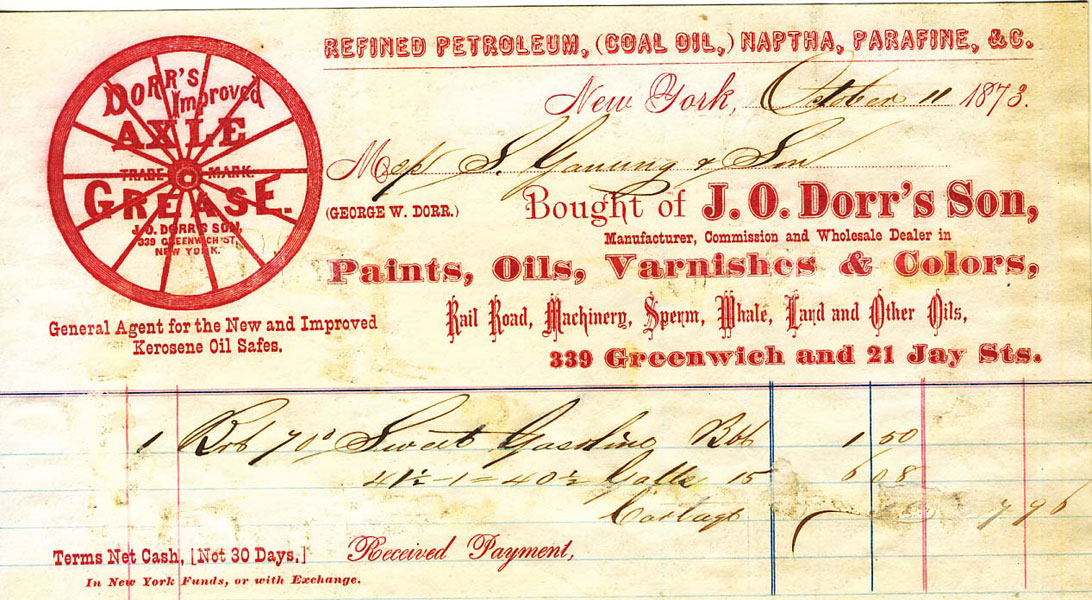 REFINED PETROLEUM, (COAL OIL,) NAPTHA, PARAFINE, &C.
New York, October 11 1873.
DORR'S
Improved
AXLE
TRADE MARK.
GREASE.
J. O. DORR'S SON,
339 GREENWICH ST,
NEW YORK.
General Agent for the New and Improved
Kerosene Oil Safes.
Mess S. & Son
(GEORGE W. DORR.)
Bought of J. O. Dorr's Son,
Manufacturer, Commission and Wholesale Dealer in
Paints, Oils, Varnishes & Colors,
Rail Road, Machinery, Sperm, Whale, Lard and Other Oils,
339 Greenwich and 21 Jay Sts.
1 Brl 70° Sweet Gasoline Bbl 1 50
41½-1=40½ Galls 15 6 08
Cartage
7 96
Terms Net Cash, [Not 30 Days.] Received Payment,
In New York Funds, or with Exchange.